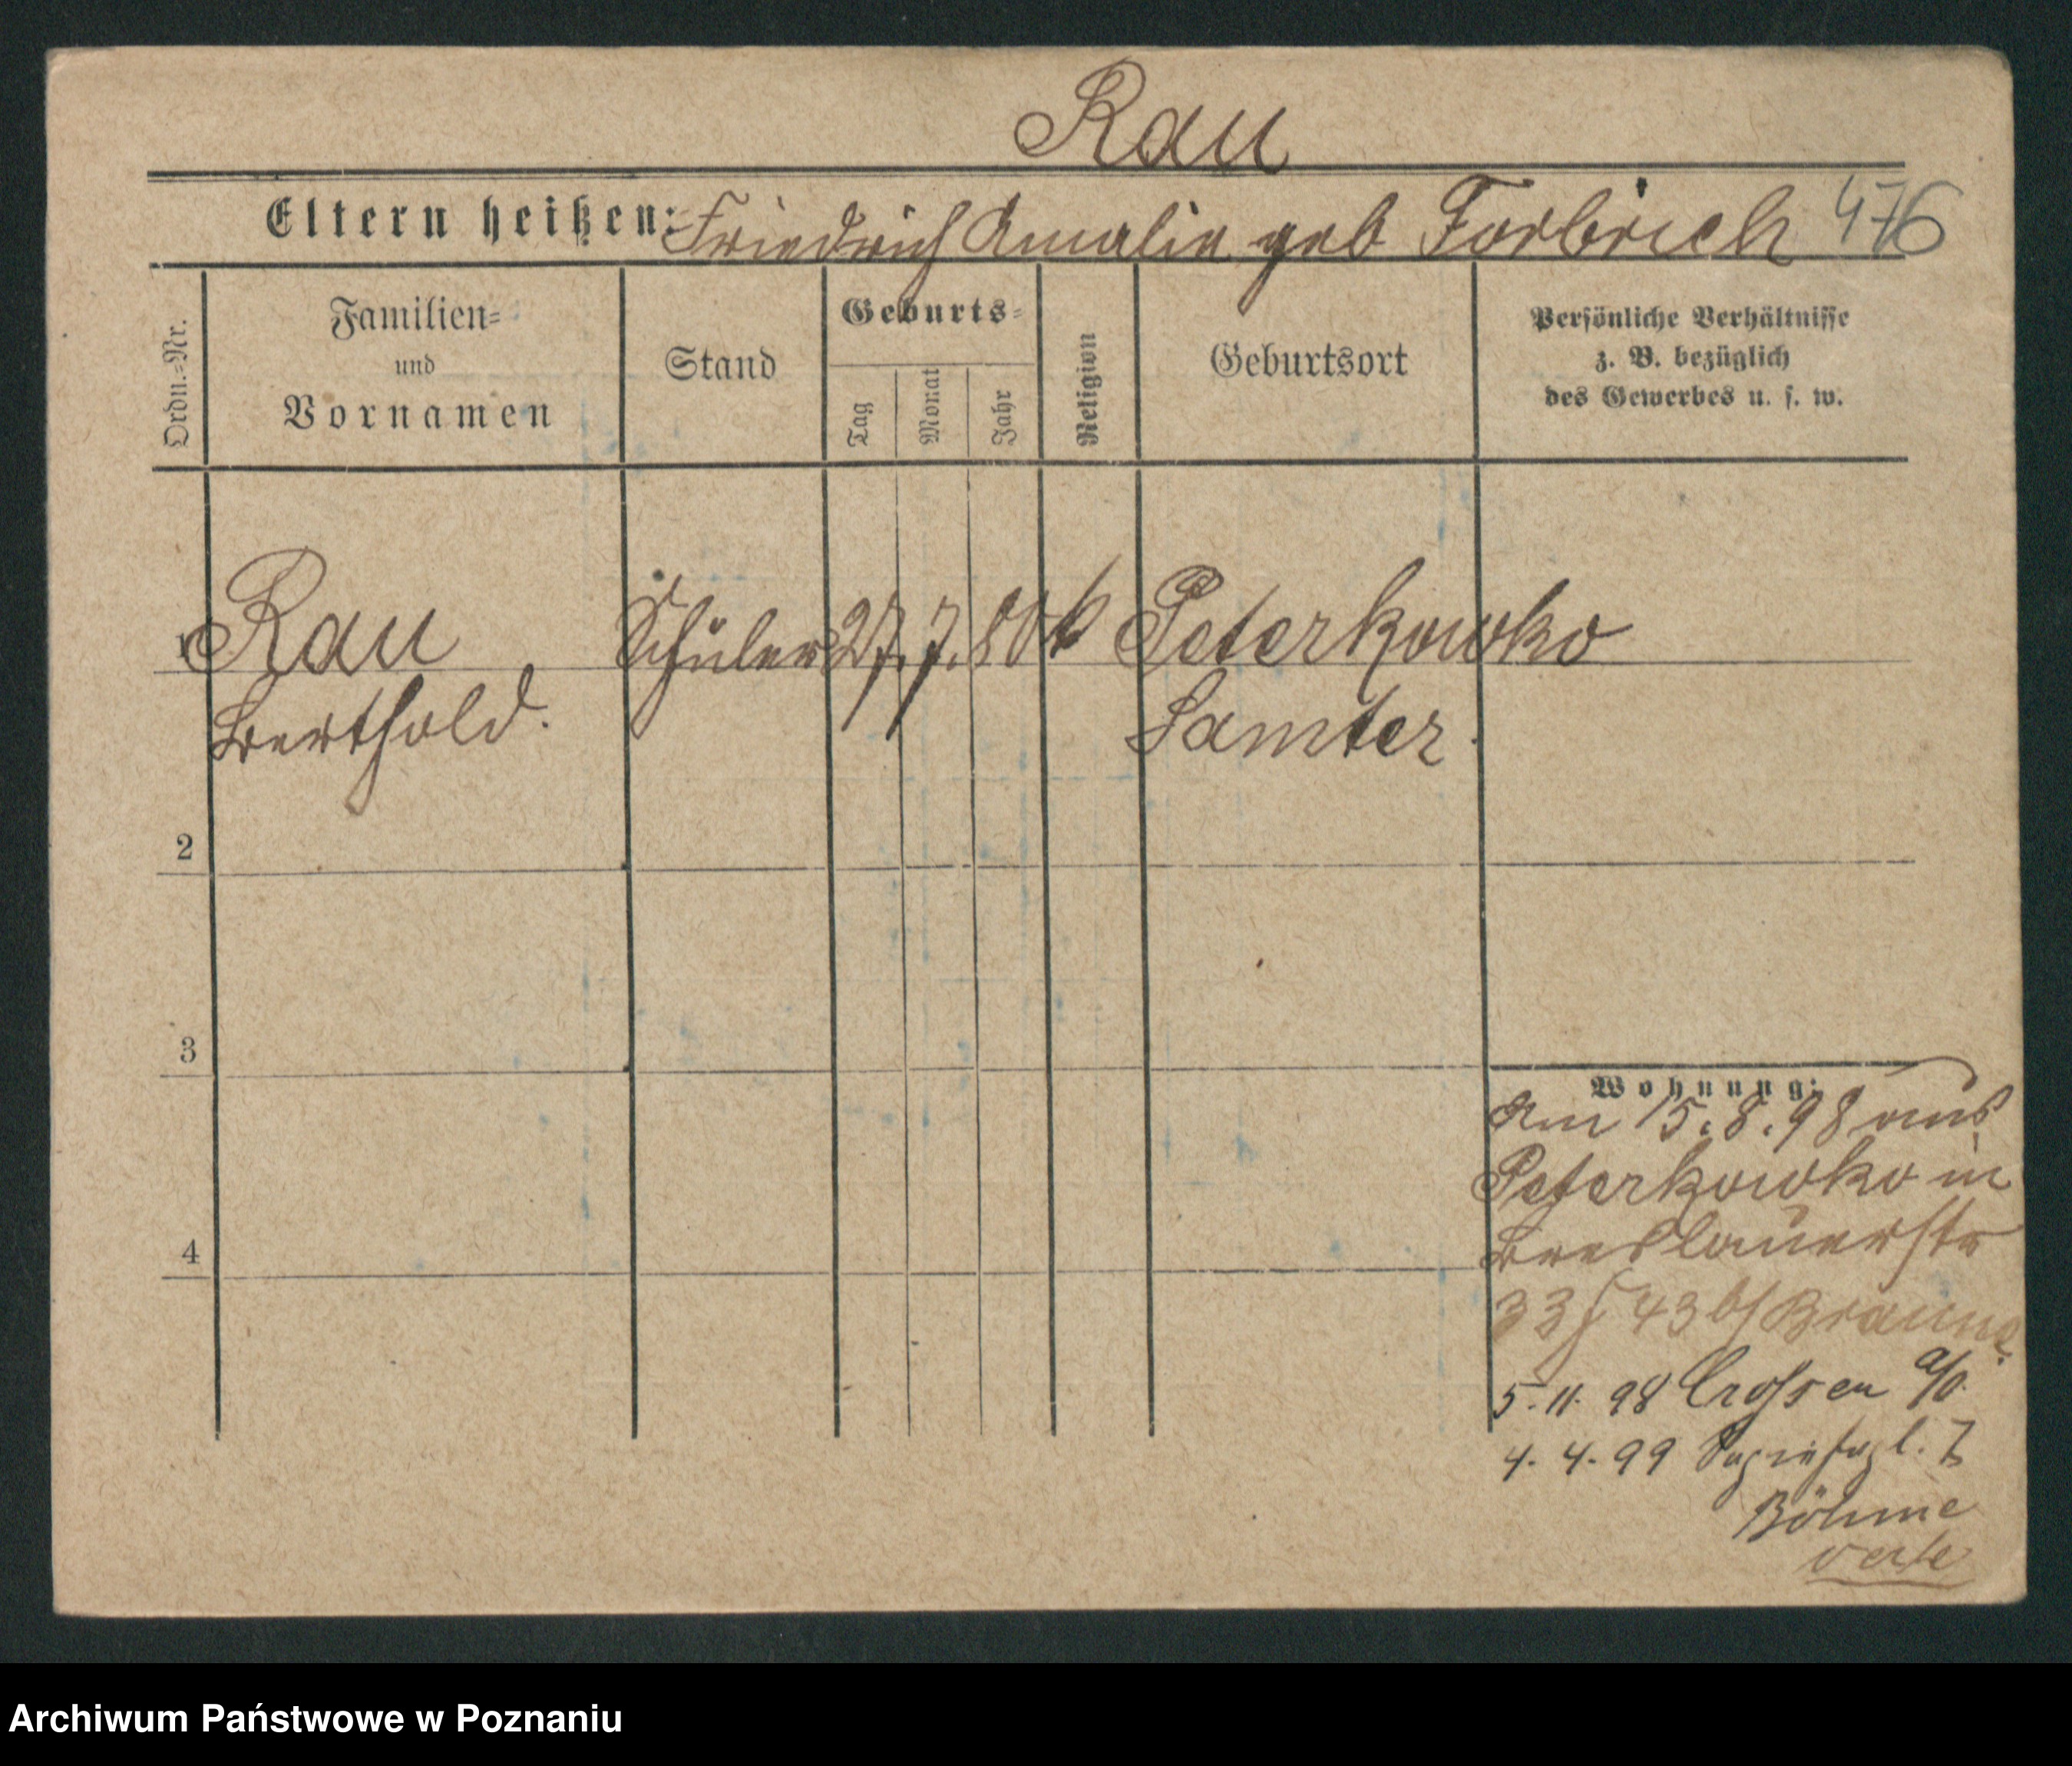 Rau
Eltern heißen: Friedrich Amalie geb Forbrich 476
Ordn.-Nr.
Familien-
und
Vornamen
Stand
Geburts-
Tag
Monat
Jahr
Religion
Geburtsort
Persönliche Verhältnisse
z. B. bezüglich
des Gewerbes u. s. w.
1 Rau Schüler 27. 7. 80 Peterkowko
Berthold. Samter.
2
3
4
Wohnung:
Am 15.8.98 aus
Peterkowko in
Breslauerstr
33 43 b/ Braune.
5.11. 98 Crossen a/o.
4. 4. 99
Böhme
verte
Archiwum Państwowe w Poznaniu